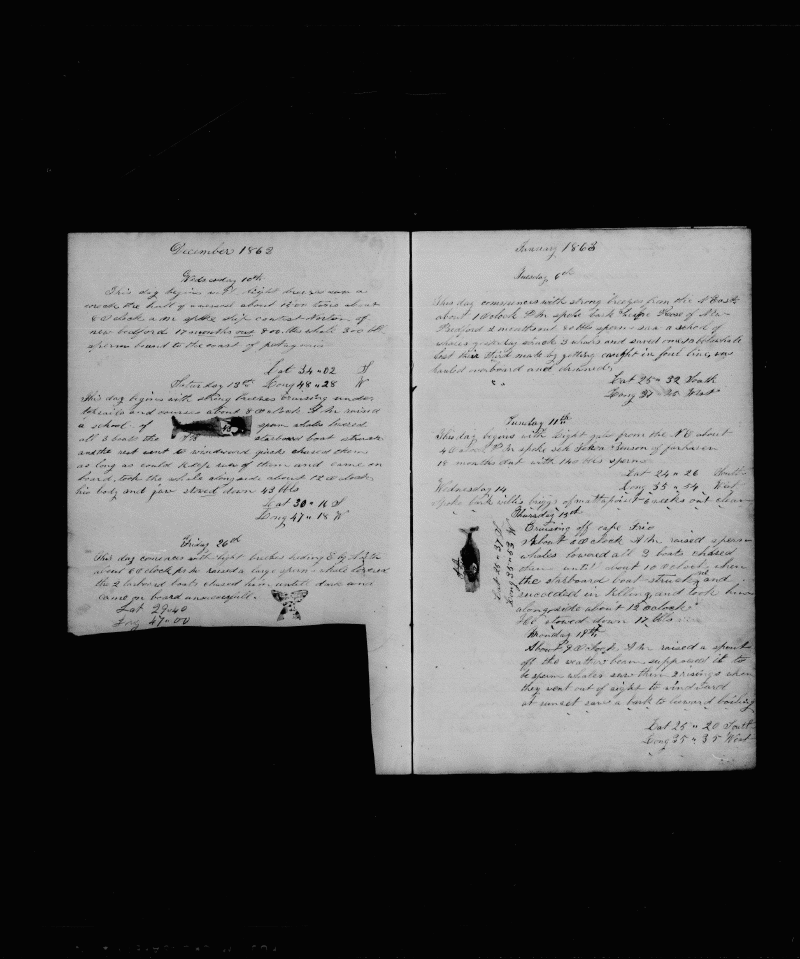 December 1862
Wednesday 10th
This day begins with light breezes saw a
wreck the hull of a vessel about 1500 tons about
6 O clock A M spoke ship contest Norton of
new bedford 17 months out 800 bbls whale 300 bbls
sperm bound to the coast of patagonia
Lat 34 " 02 S
Saturday 13th Long 48 " 28 W
This day begins with strong breezes cruising under
topsails and courses about 8 O clock A M raised
a school of sperm whales lowered
all 3 boats the starboard boat struck
and the rest went to windward chased them
as long as could keep run of them and came on
board, took the whale alongside about 12 O clock
his body and jaw stowed down 43 bbls
43
Lat 30 " 16 S
Long 47 " 18 W
Friday 26th
This day comences with light
about 6 O clock P M raised a large sperm whale lowered
the 2 larboard boats chased him until dark and
came on board unsuccessfull
Lat 29 " 40
Long 47 " 00
January 1863
Tuesday 6th
This day commences with strong breezes from the N East
about 1 O clock P M spoke bark of New
Bedford 2 months out 80 bbls sperm saw a school of
whales yesterday struck 3 whales and saved one
lost this by getting caught in foul line, was
hauled overboard and drowned
Lat 25 " 32 South
Long 37 " 25 West
Sunday 11th
This day begins with light from the N E about
4 O clock P M spoke sch of
18 months out with 140 bbls sperm
Lat 24 " 26 South
Wednesday 14 Long 35 " 54 West
spoke bark of mattapoisett 6 weeks out clean
Thursday 15th
Cruising off cape Frio
About 6 O clock A M raised sperm
whales lowered all 3 boats chased
them until about 10 O clock when
the starboard boat struck one and
succeeded in killing, and took him
alongside about 12 O clock
stowed down 17 bbls
Lat 25 " 37 S
Long 35 " 53 W
Monday 19th
About 9 O clock A M raised a spout
off the weather beam supposed it to
be sperm whales saw them 2 risings when
they went out of sight to windward
at sunset saw a bark to leeward boiling
Lat 25 " 20 South
Long 35 " 35 West